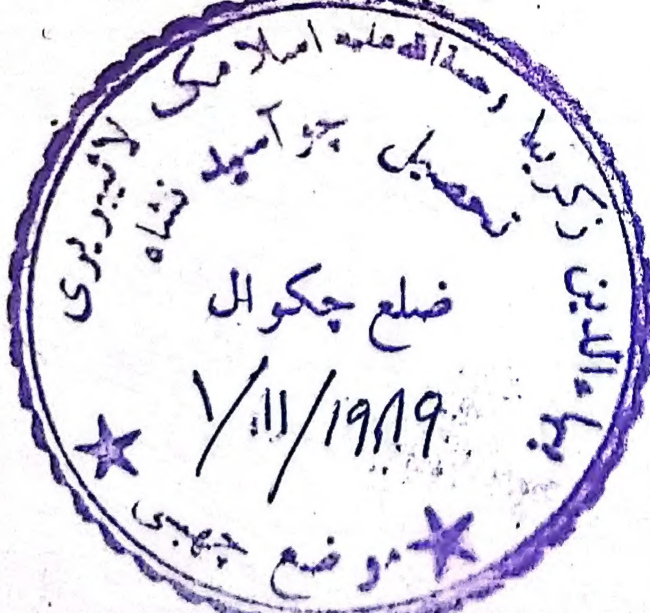 بہاءالدین زکریا رحمۃاللہ علیہ اسلامک لائبریری
تحصیل چوآسید نشاہ
ضلع چکوال
۱/۱۱/۱۹۸۹
موضع چھبی